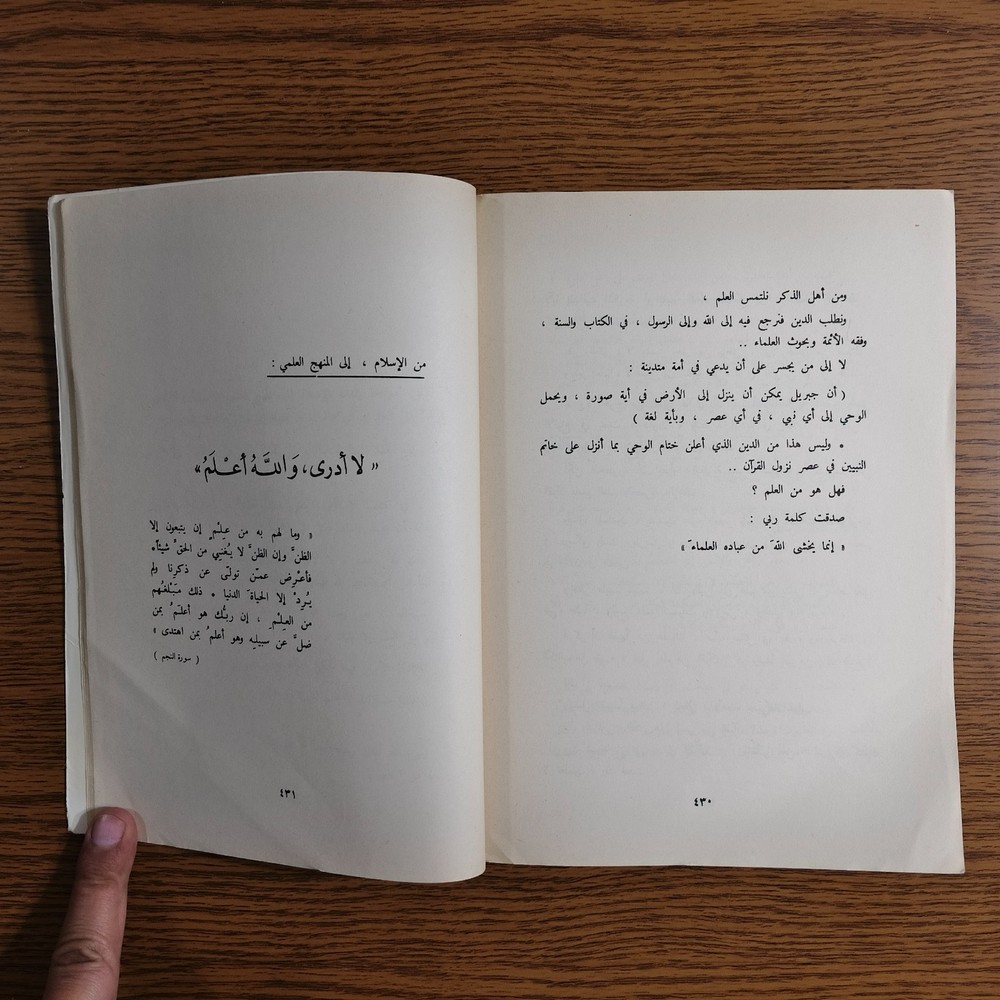 ومن أهل الذكر نلتمس العلم ،
ونطلب الدين فنرجع فيه إلى الله وإلى الرسول ، في الكتاب والسنة ،
وفقه الأئمة وبحوث العلماء ..
لا إلى من يجسر على أن يدعي في أمة متدينة :
( أن جبريل يمكن أن ينزل إلى الأرض في أية صورة ، ويحمل
الوحي إلى أي نبي ، في أي عصر ، وبأية لغة )
• وليس هذا من الدين الذي أعلن ختام الوحي بما أنزل على خاتم
النبيين في عصر نزول القرآن ..
فهل هو من العلم ؟
صدقت كلمة ربي :
« إنما يخشى اللهَ من عباده العلماءَ »
٤٣٠
من الإسلام ، إلى المنهج العلمي :
« لا أدرى، وَاللَّهُ أَعْلَمُ »
« وما لهم به من عِلْمٍ إن يتبعون إلا
الظنَّ وإن الظنَّ لا يُغنِي من الحقِّ شيئاً •
فأعْرِض عمّن تولّى عن ذكرِنا ولم
يُرِدْ إلا الحياةَ الدنيا • ذلك مَبْلغُهم
من العِلْمِ ، إن ربَّك هو أعلمُ بمن
ضلَّ عن سبيلِه وهو أعلمُ بمن اهتدى »
( سورة النجم )
٤٣١